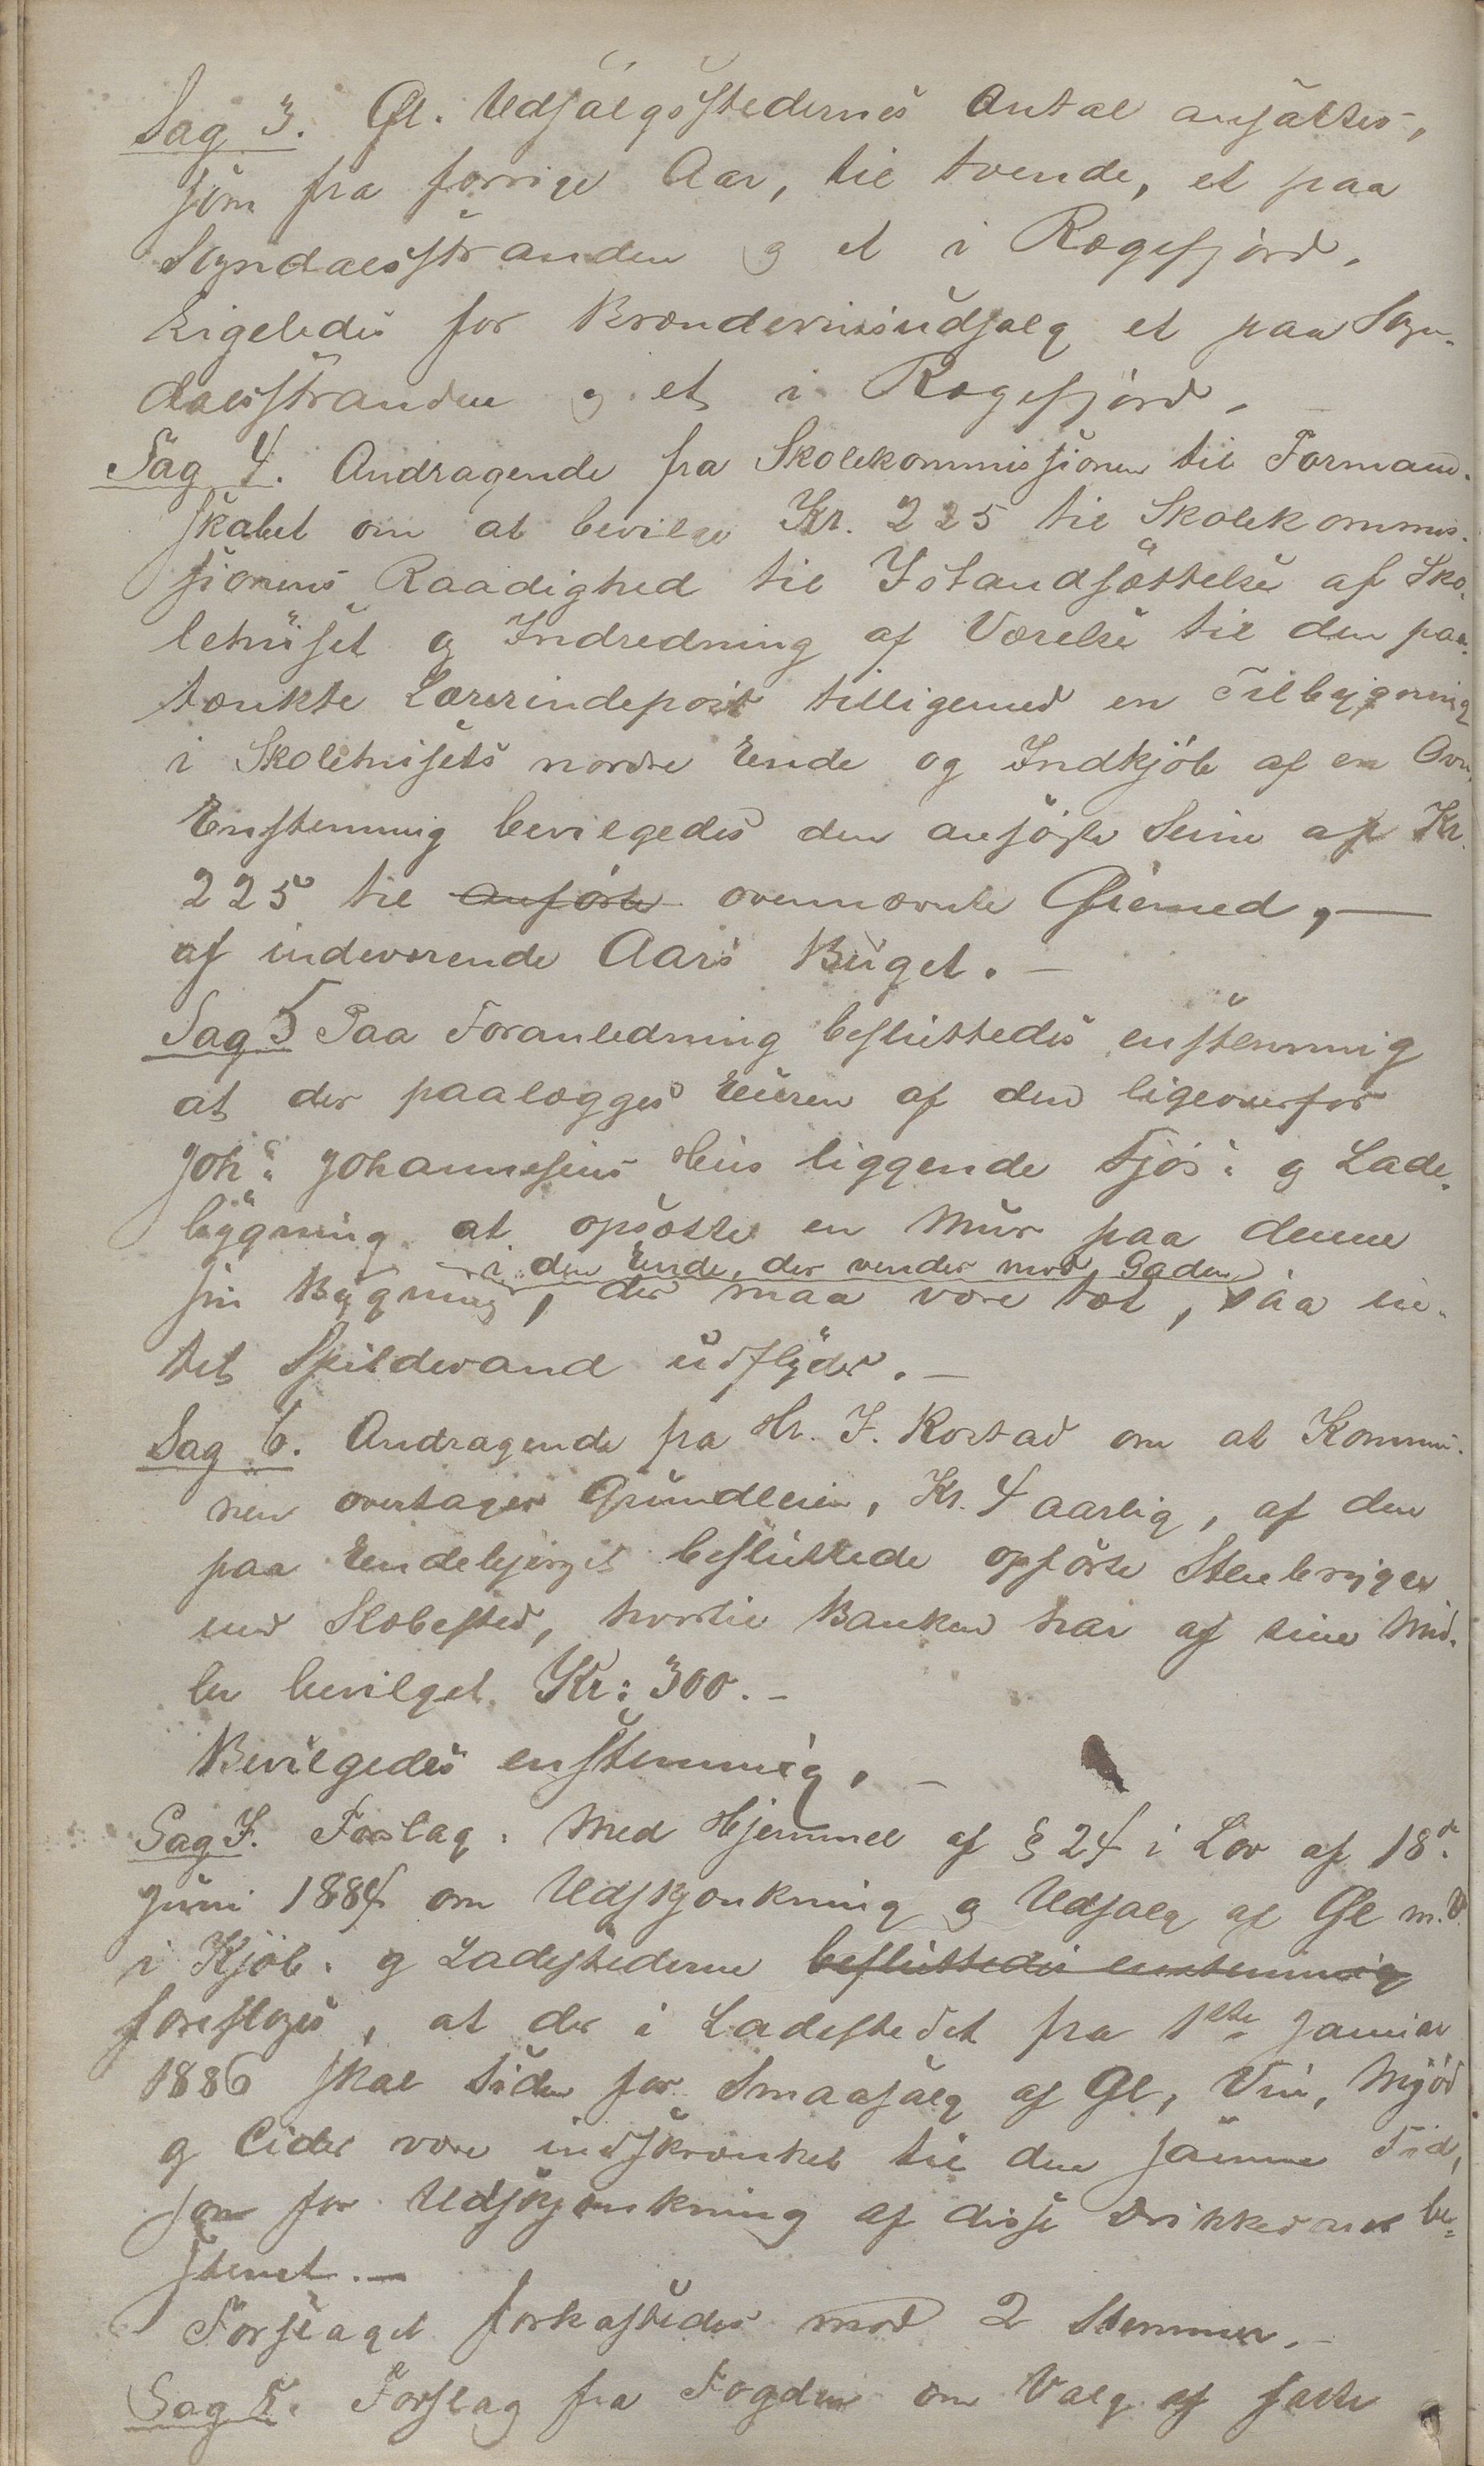 Sag 3. Øl. Udsalgsstedernes Antal ansattes,
som fra forrige Aar, til tvende, et paa
Sogndalsstranden og et i Rægefjord.
Ligeledes for Brændevinsudsalg et paa Sogn-
dalsstranden og et i Rægefjord.
Sag 4. Andragende fra Skolekommissionen til Formand-
skabet om at bevilge Kr. 225 til Skolekommis-
sionens Raadighed til Istandsættelse af Sko-
lehuset og Indredning af Værelse til den paa-
tænkte Lærerindepost tilligemed en Tilbygning
i Skolehusets nordre Ende og Indkjøb af en Ovn.
Enstemmig bevilgedes den ansøgte Sum af Kr.
225 til anførte ovennævnte Øiemed, —
af indeværende Aars Buget. —
Sag 5 Paa Foranledning besluttedes enstemmig
at der paalægges Eieren af den ligeoverfor
Joh: Johannesens Hus liggende Fjøs: og Lade-
bygning at opsætte en Mur paa denne
i den Ende, der vender mod Gaden
sin Bygning, der maa være tæt, saa in-
tet Spildevand udflyder. —
Sag 6. Andragende fra Hr. J. Rostad om at Kommu-
nen overtager Grundleien, Kr. 4 aarlig, af den
paa Endebjerget besluttede opførte Stenbrygge
med Slæbested, hvortil Banken har af sine Mid-
ler bevilget Kr: 300. —
Bevilgedes enstemmig. —
Sag 7. Forslag: Med Hjemmel af § 24 i Lov af 18de
Juni 1884 om Udskjænkning og Udsalg af Øl m. V.
i Kjøb: og Ladestederne besluttedes enstemmig
foresloges, at der i Ladestedet fra 1ste Januar
1886 skal Tiden for Smaasalg af Øl, Vin, Mjød
og Cider være indskrænket til den samme Tid,
som for Udskjænkning af disse Drikkevarer be-
stemt. —
Forslaget forkastedes mod 2 Stemmer. —
Sag 8. Forslag fra Fogden om Valg af faste